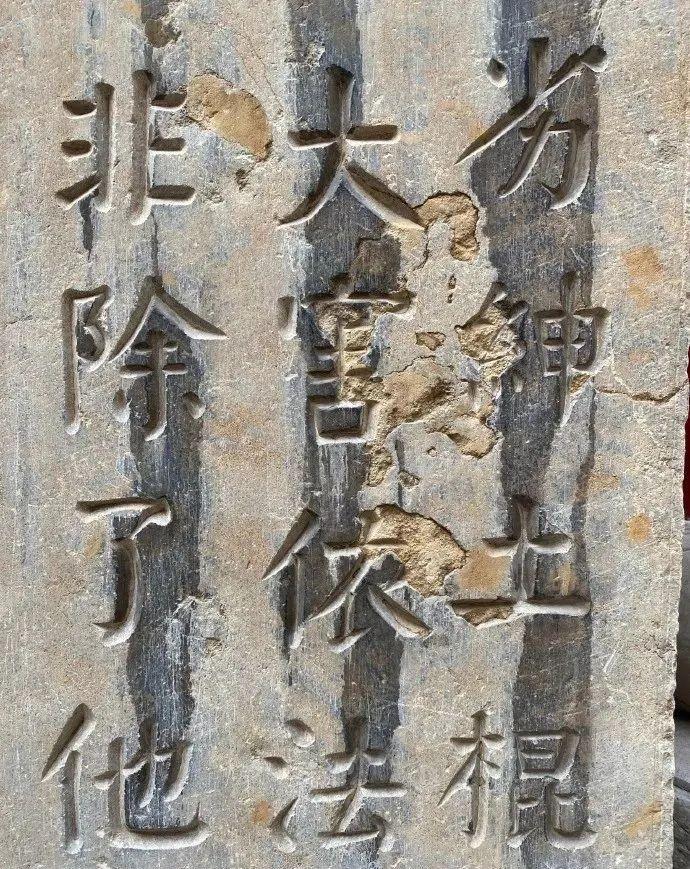 劣紳土棍
大害依法
非除了他